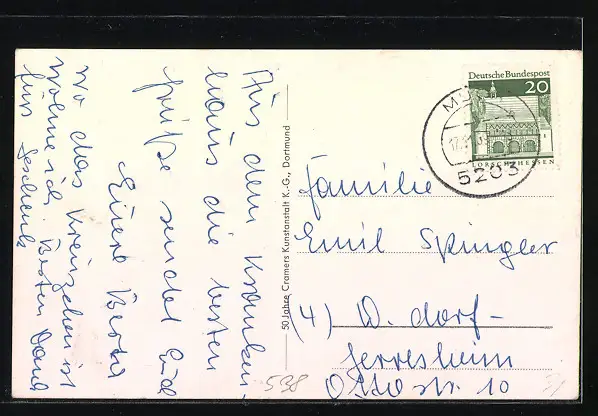 Aus dem Kranken-
haus die besten
grüße sendet Euch
Eure Berta
Wo das Kreuzchen ist
wohne ich. Besten Dank
fürs Geschenk
50 Jahre Cramers Kunstanstalt K.-G., Dortmund
Deutsche Bundespost
20
LORSCH/HESSEN
5203
Familie
Emil Spingler
(4) D.dorf-
Gerresheim
Ottostr. 10
538